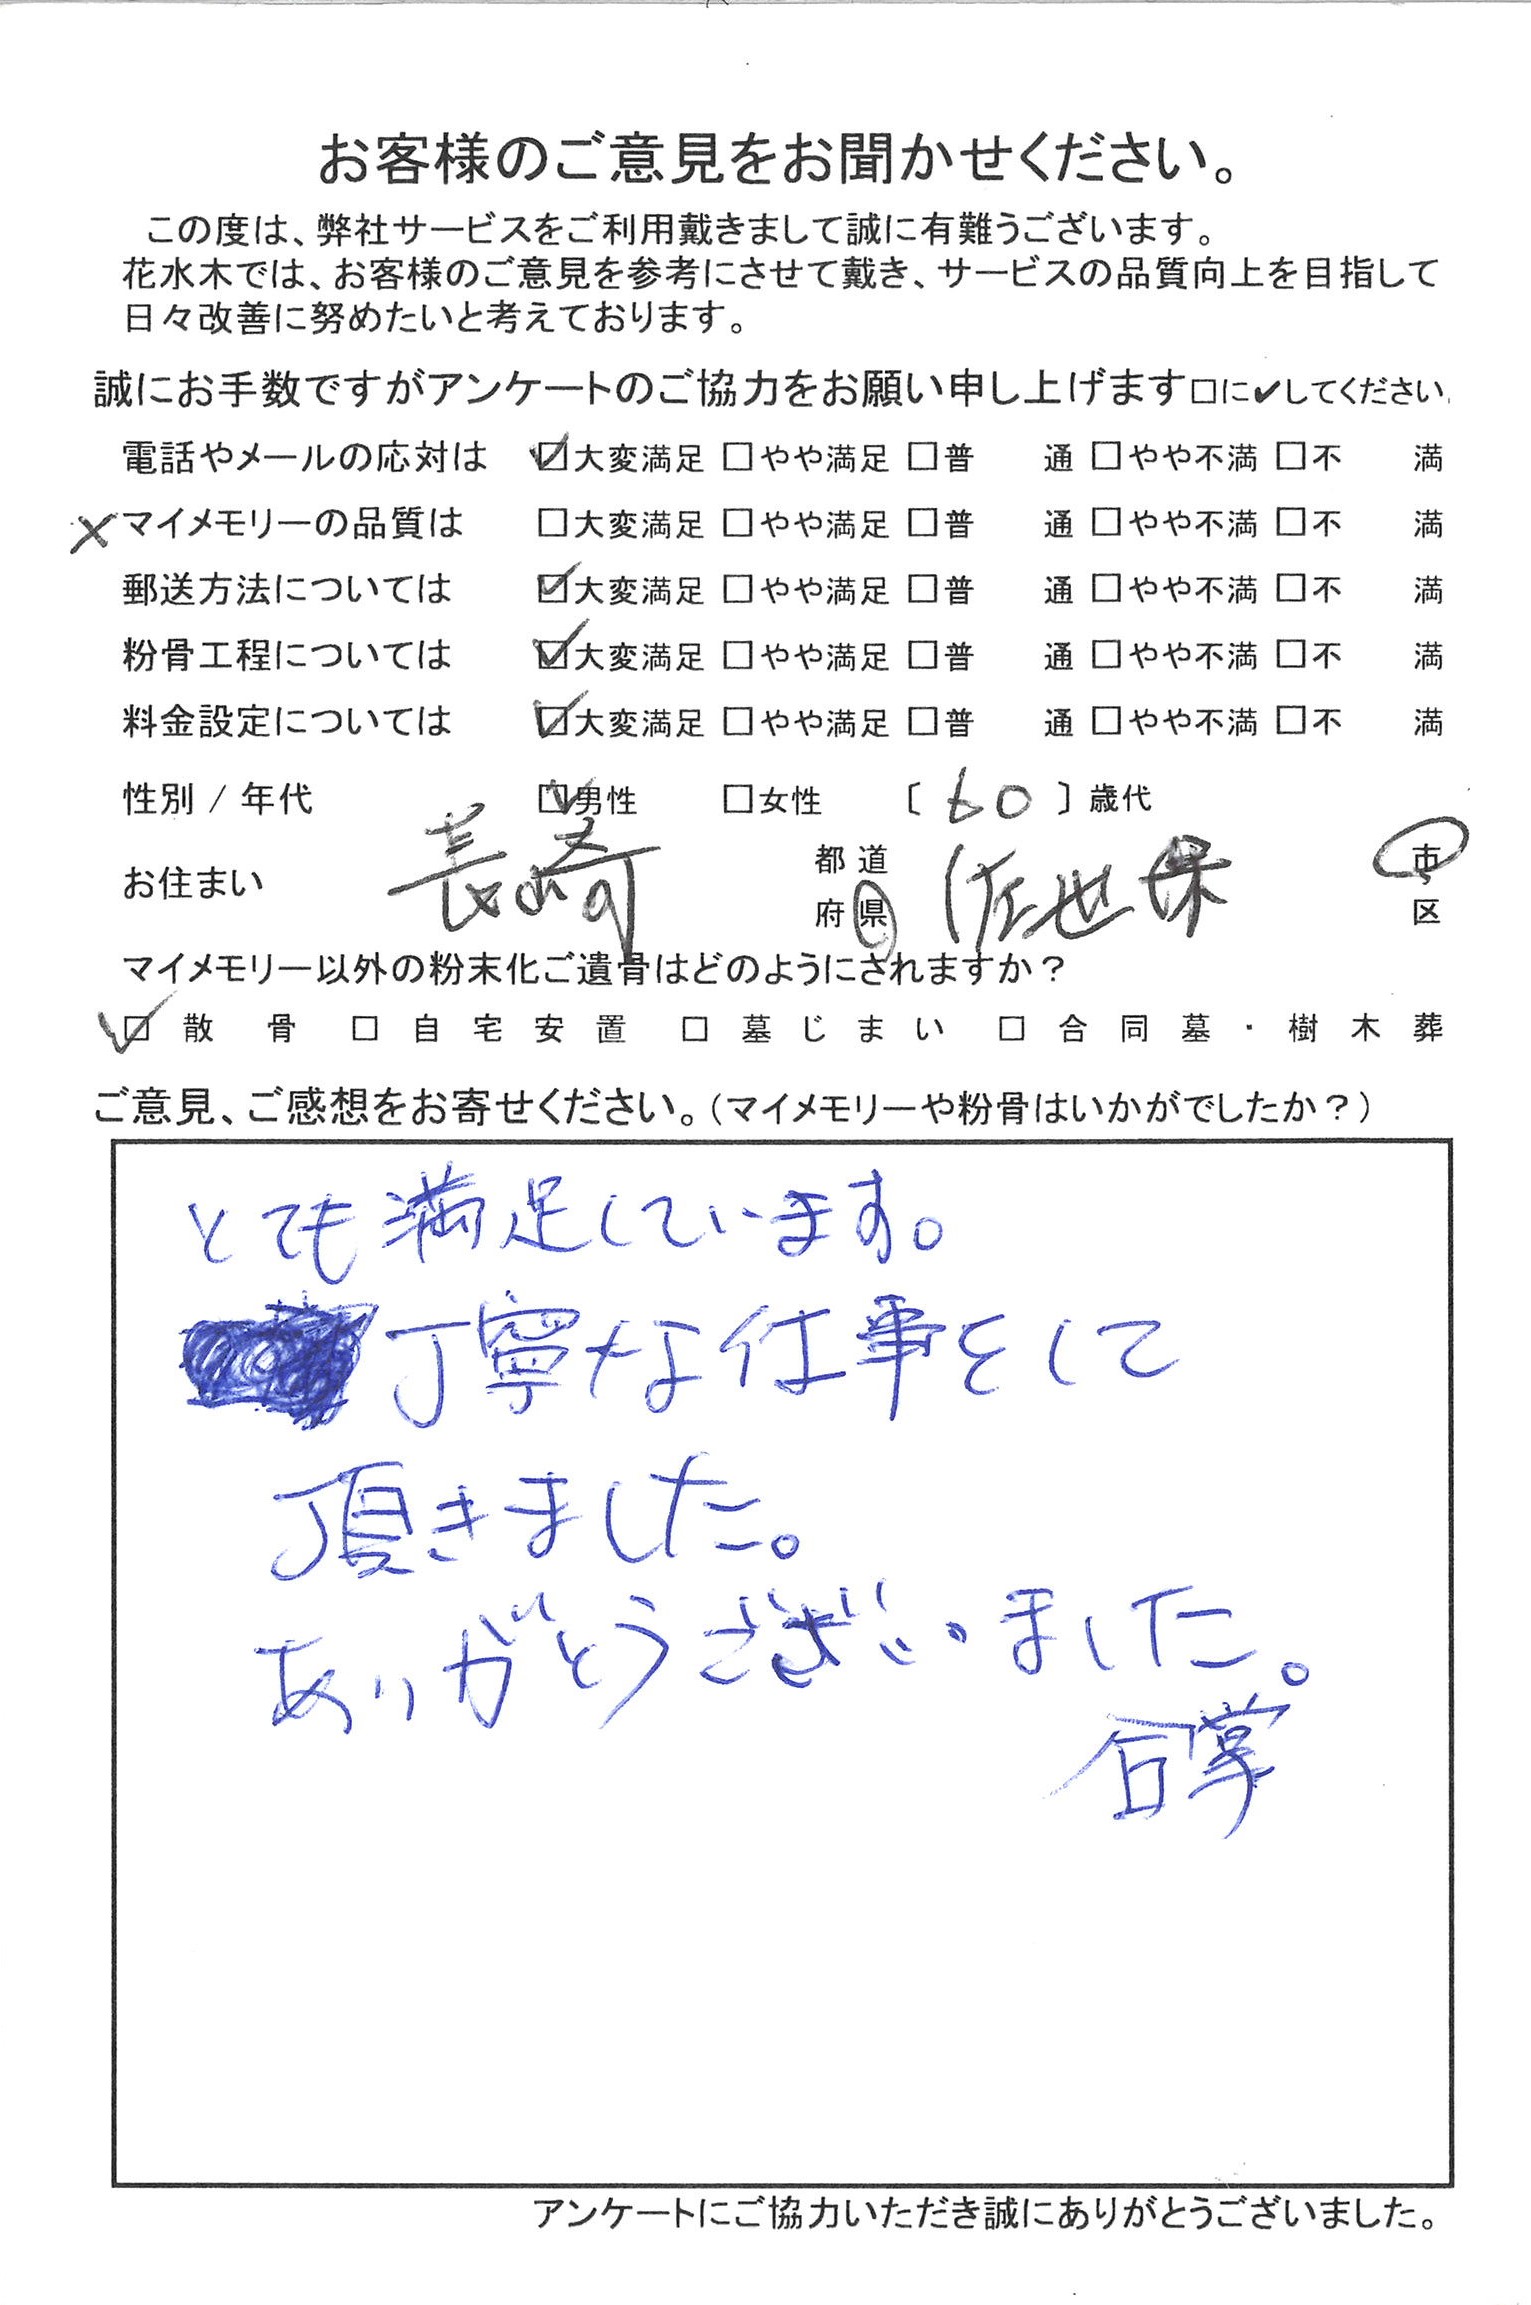 お客様のご意見をお聞かせください。
この度は、弊社サービスをご利用戴きまして誠に有難うございます。
花水木では、お客様のご意見を参考にさせて戴き、サービスの品質向上を目指して
日々改善に努めたいと考えております。
誠にお手数ですがアンケートのご協力をお願い申し上げます□に✔してください。
電話やメールの応対は ☑大変満足 □やや満足 □普 通 □やや不満 □不 満
×マイメモリーの品質は □大変満足 □やや満足 □普 通 □やや不満 □不 満
郵送方法については ☑大変満足 □やや満足 □普 通 □やや不満 □不 満
粉骨工程については ☑大変満足 □やや満足 □普 通 □やや不満 □不 満
料金設定については ☑大変満足 □やや満足 □普 通 □やや不満 □不 満
性別 / 年代 ☑男性 □女性 〔 60 〕歳代
お住まい 長崎 都道府県 佐世保 市区
マイメモリー以外の粉末化ご遺骨はどのようにされますか？
☑ 散骨 □ 自宅安置 □ 墓じまい □ 合同墓・樹木葬
ご意見、ご感想をお寄せください。（マイメモリーや粉骨はいかがでしたか？）
とても満足しています。
丁寧な仕事をして
頂きました。
ありがとうございました。
合掌
アンケートにご協力いただき誠にありがとうございました。